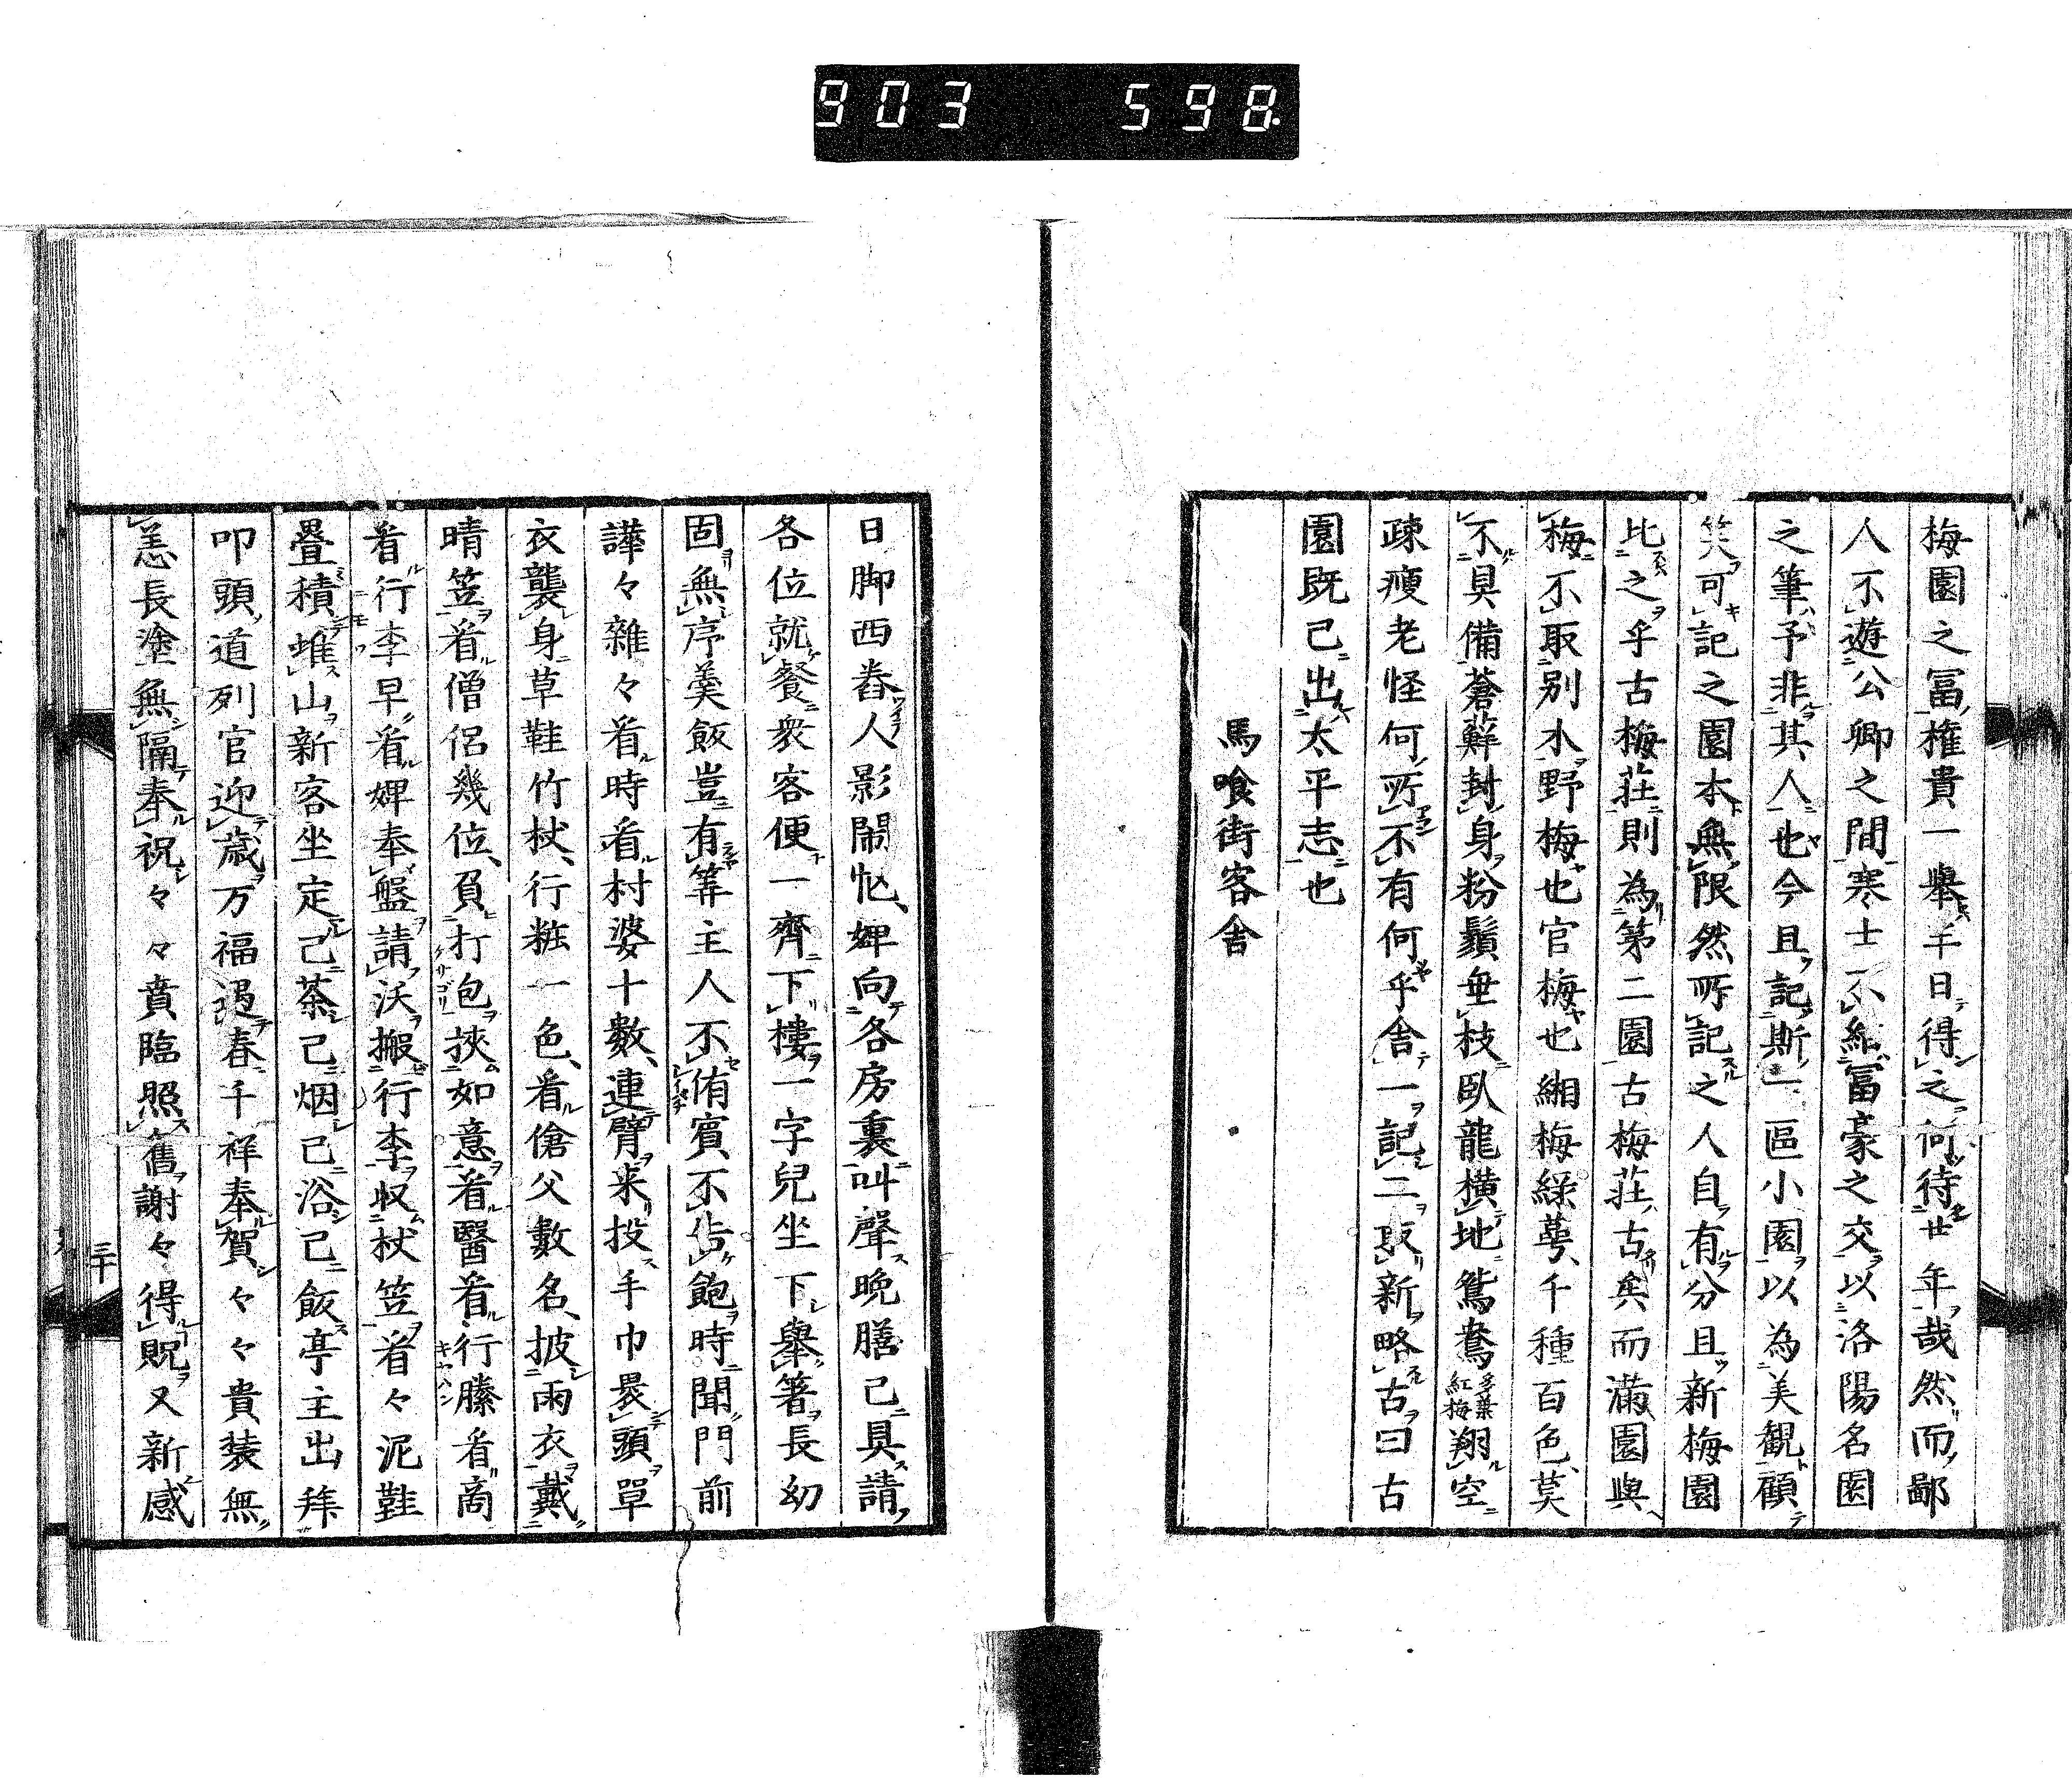 903 598.
梅園之冨権貴一舉千日得之何待廿年哉然而鄙
人不遊公卿之間寒士不結冨豪之交以洛陽名園
之筆予非其人也今且記斯一區小園以為美観顧
笑可記之園本無限然所記之人自有分且新梅園
比之乎古梅荘則為第二園古梅荘古矣而満園與
梅不取別水野梅也官梅也緗梅緑萼千種百色莫
不具備蒼蘚封身粉鬚垂枝臥龍横地鴛鴦多葉紅梅翔空
疎痩老怪何所不有何乎舎一記二取新略古曰古
園既已出太平志也
馬喰街客舎
日脚西舂人影閙忙婢向各房裏叫聲晩膳已具請
各位就餐衆客便一齊下樓一字兒坐下舉箸長幼
固無序羮飯豈有等主人不侑賓不告飽時聞門前
譁々雜々看時看村婆十數連臂来投手巾裹頭單
衣襲身草鞋竹杖行粧一色看傖父數名披雨衣戴
晴笠看僧侶幾位負打包挾如意看醫看行縢看商
看行李早看婢奉盤請沃搬行李収杖笠着々泥鞋
疊積堆山新客坐定已茶已烟已浴已飯亭主出拜
叩頭道列官迎歳万福遇春千祥奉賀々々貴装無
恙長塗無隔奉祝々々賁臨照舊謝々得貺又新感
三十